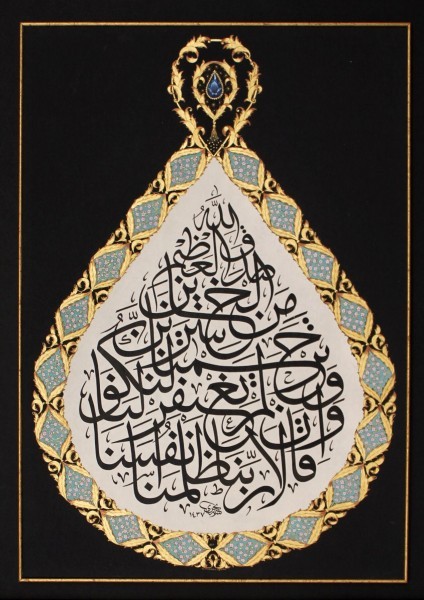 قالا ربنا ظلمنا انفسنا
وان لم تغفر لنا
وترحمنا لنكونن
من الخاسرين
صدق الله العظيم